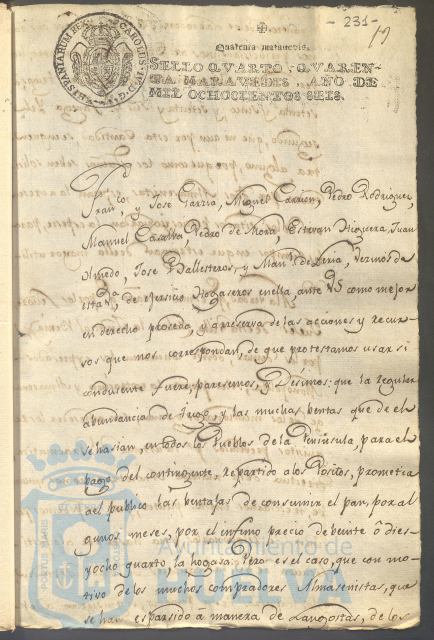 - 231 -
Quarenta maravedis.
SELLO QVARTO, QVAREN-
TA MARAVEDIS, AÑO DE
MIL OCHOCIENTOS SEIS.
HISPANIARUM REX CAROLUS IV D. G.
Franco. y José Garzia, Miguel Carrion, Pedro Rodriguez,
Manuel Casalla, Pedro de Mora, Estevan Higuera, Juan
Olmedo, José Ballesteros, y Manl. de Leria, Vezinos de
esta Va. de exersisio Hogaseros en ella, ante VS como mejor
en derecho proceda, y a reserva de las acciones y recur-
sos que nos correspondan, de que protestamos usar si
condusente fuere, paresemos, y Desimos: que la regular
abundancia de trigo, y las muchas bentas que de el
se hasian, en todos los Pueblos de la Peninsula, para el
pago del contingente, repartido a los Positos, prometia
a el publico las bentajas de consumir el pan, por al
gunos meses, por el infimo precio de beinte ô dies
yocho quarto, la hogasa. Pero es el caso, que con mo-
tivo de los muchos compradores Almasenistas, que
se han esparsido à manera de Langostas, de los
PORTUS MARIS
Ayuntamiento de